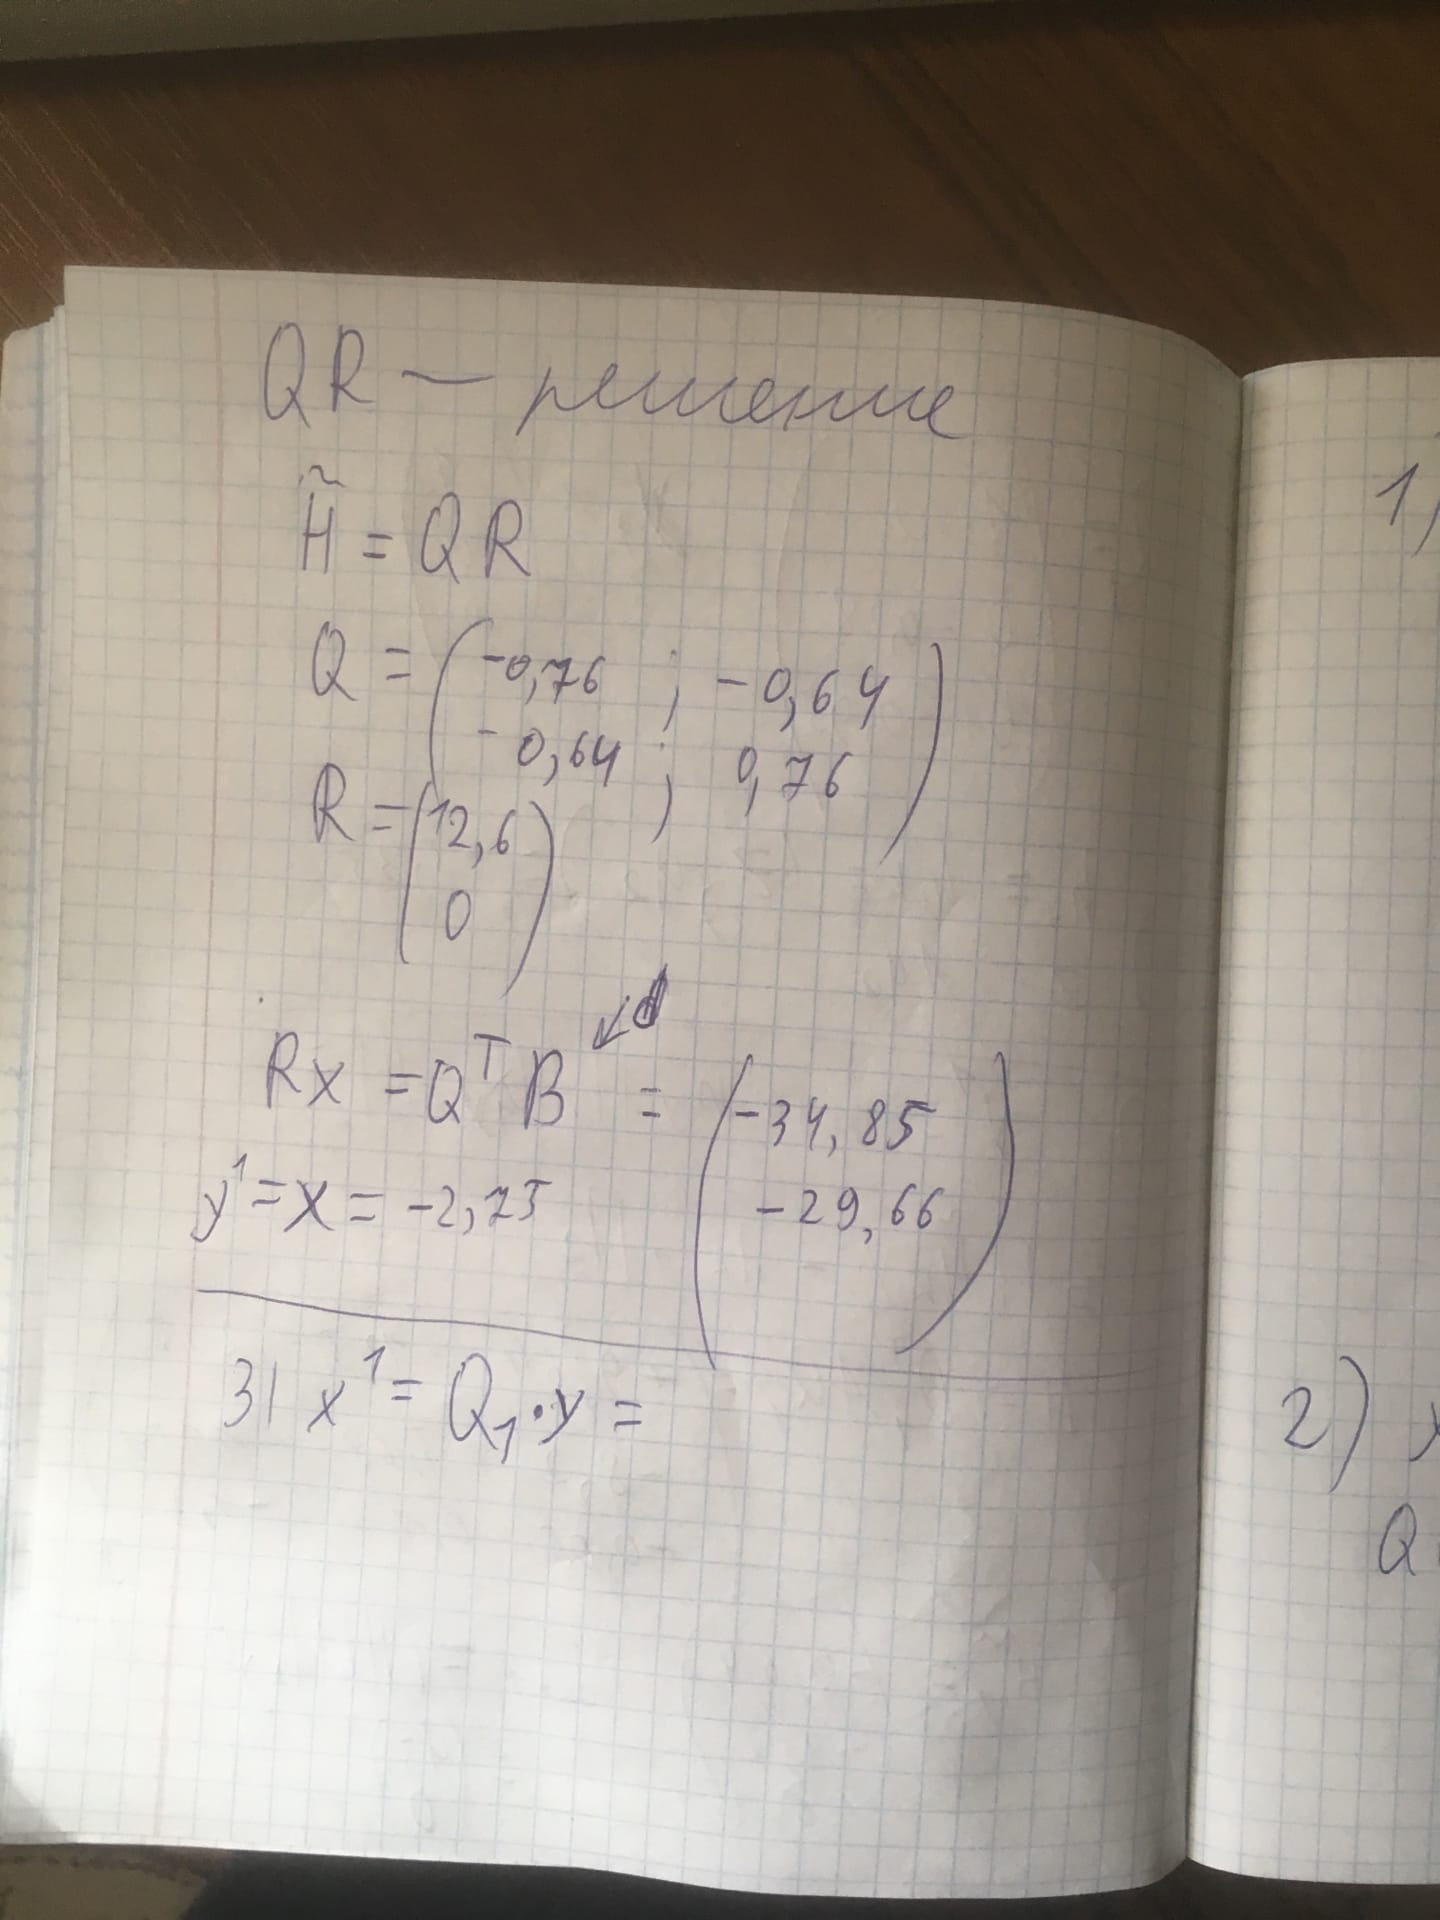 QR – решение
H̃ = QR
Q = (-0,76 ; -0,64
-0,64 ; 0,76)
R = (12,6
0)
Rx = QᵀB ↙d = (-34,85
-29,66)
y¹ = x = -2,75
31 x¹ = Q₁·y =
1)
2)
Q